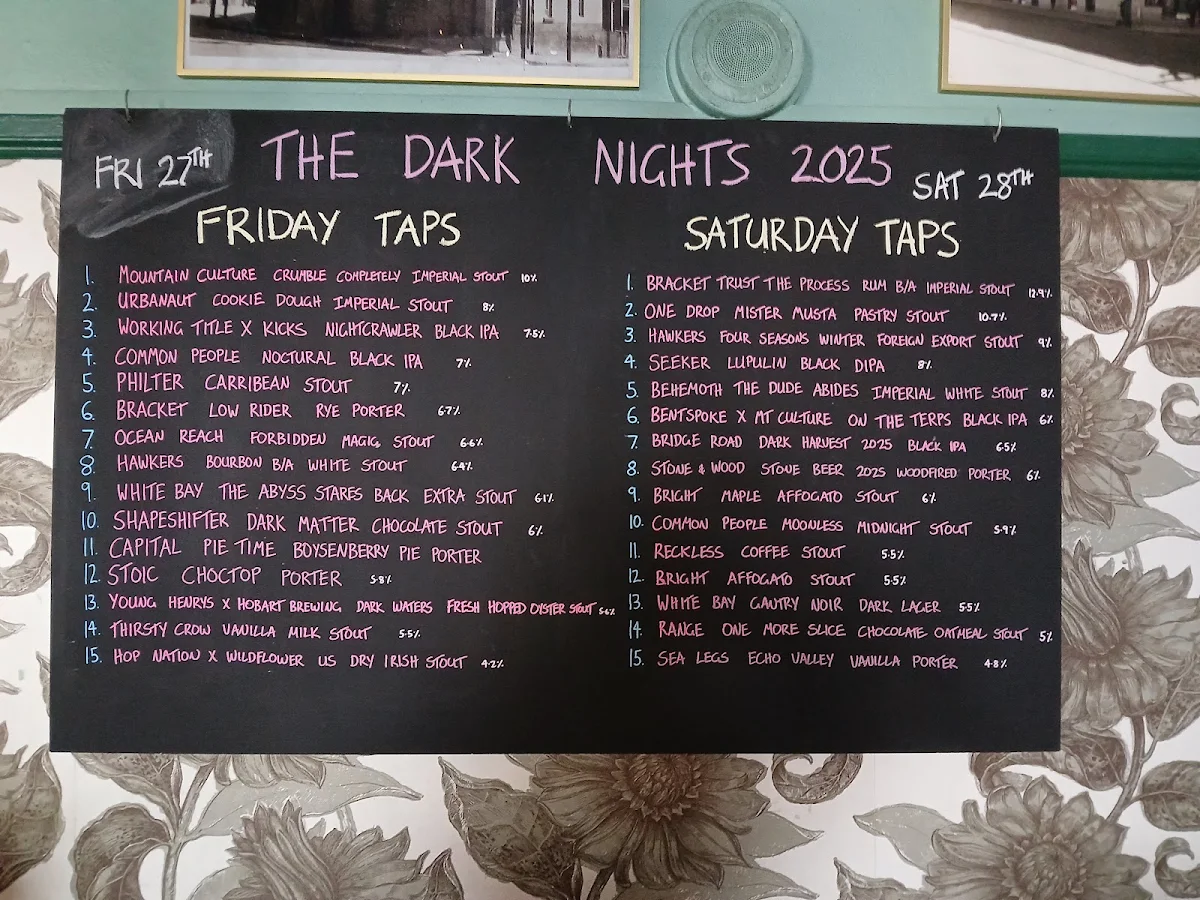 FRI 27TH THE DARK NIGHTS 2025 SAT 28TH
FRIDAY TAPS
1. MOUNTAIN CULTURE CRUMBLE COMPLETELY IMPERIAL STOUT 10%
2. URBANAUT COOKIE DOUGH IMPERIAL STOUT 8%
3. WORKING TITLE X KICKS NIGHTCRAWLER BLACK IPA 7.5%
4. COMMON PEOPLE NOCTURAL BLACK IPA 7%
5. PHILTER CARRIBEAN STOUT 7%
6. BRACKET LOW RIDER RYE PORTER 6.7%
7. OCEAN REACH FORBIDDEN MAGIC STOUT 6.6%
8. HAWKERS BOURBON B/A WHITE STOUT 6.4%
9. WHITE BAY THE ABYSS STARES BACK EXTRA STOUT 6.1%
10. SHAPESHIFTER DARK MATTER CHOCOLATE STOUT 6%
11. CAPITAL PIE TIME BOYSENBERRY PIE PORTER
12. STOIC CHOCTOP PORTER 5.8%
13. YOUNG HENRYS X HOBART BREWING DARK WATERS FRESH HOPPED OYSTER STOUT 5.6%
14. THIRSTY CROW VANILLA MILK STOUT 5.5%
15. HOP NATION X WILDFLOWER US DRY IRISH STOUT 4.2%
SATURDAY TAPS
1. BRACKET TRUST THE PROCESS RUM B/A IMPERIAL STOUT 12.9%
2. ONE DROP MISTER MUSTA PASTRY STOUT 10.7%
3. HAWKERS FOUR SEASONS WINTER FOREIGN EXPORT STOUT 9%
4. SEEKER LUPULIN BLACK DIPA 8%
5. BEHEMOTH THE DUDE ABIDES IMPERIAL WHITE STOUT 8%
6. BENTSPOKE X MT CULTURE ON THE TERPS BLACK IPA 6%
7. BRIDGE ROAD DARK HARVEST 2025 BLACK IPA 6.5%
8. STONE & WOOD STONE BEER 2025 WOODFIRED PORTER 6%
9. BRIGHT MAPLE AFFOGATO STOUT 6%
10. COMMON PEOPLE MOONLESS MIDNIGHT STOUT 5.9%
11. RECKLESS COFFEE STOUT 5.5%
12. BRIGHT AFFOGATO STOUT 5.5%
13. WHITE BAY GANTRY NOIR DARK LAGER 5.5%
14. RANGE ONE MORE SLICE CHOCOLATE OATMEAL STOUT 5%
15. SEA LEGS ECHO VALLEY VANILLA PORTER 4.8%